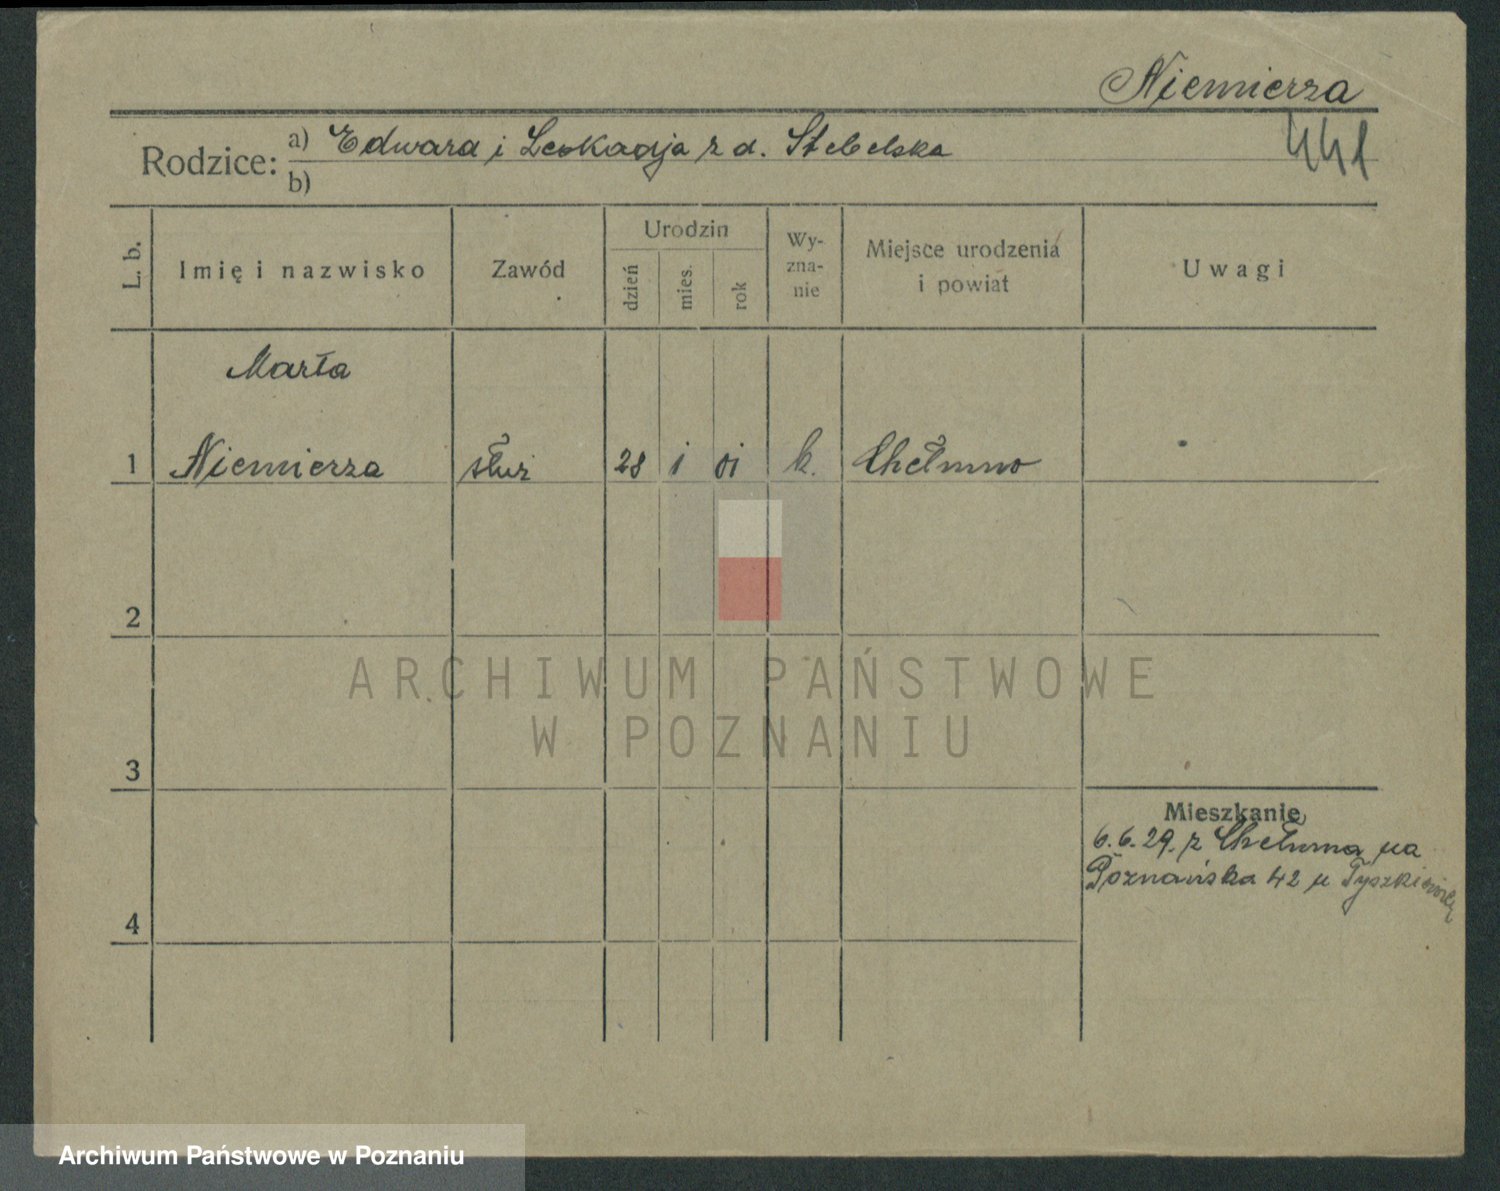 Niemierza
441
Rodzice: a) Edward i Leokadja z d. Stebelska
b)
L. b. Imię i nazwisko Zawód Urodzin dzień mies. rok Wy-zna-nie Miejsce urodzenia i powiat Uwagi
Marta
1 Niemierza służ 28 i 01 k. Chełmno
2
ARCHIWUM PAŃSTWOWE
W POZNANIU
3
Mieszkanie
6.6.29. z Chełmna na
Poznańska 42 u
4
Archiwum Państwowe w Poznaniu